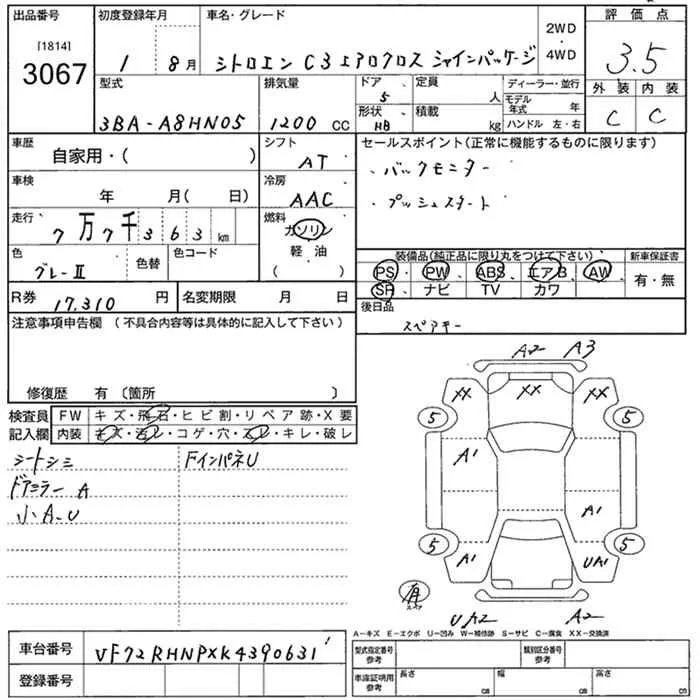 出品番号
[1814]
3067
初度登録年月
1 8月
車名・グレード
シトロエン C3エアロクロス シャインパッケージ
2WD
・
4WD
評価点
3.5
外装 内装
C C
型式
3BA-A8HN05
排気量
1200 CC
ドア
5
形状
HB
定員
人
積載
kg
ディーラー・並行
モデル年式 年
ハンドル 左・右
車歴
自家用・( )
シフト
AT
車検
年 月( 日)
冷房
AAC
走行
7万7千363km
燃料
ガソリン
軽油
( )
色
グレーII
色替
色コード
R券 17,310 円
名変期限 月 日
セールスポイント(正常に機能するものに限ります)
・バックモニター
・プッシュスタート
装備品(純正品に限り丸をつけて下さい)
PS、PW、ABS、エアB、AW、
SR、ナビ、TV、カワ
新車保証書
有・無
後日品
スペアキー
注意事項申告欄(不具合内容等は具体的に記入して下さい)
修復歴 有〔箇所 〕
検査員記入欄
FW キズ・飛石・ヒビ割・リペア跡・X要
内装 キズ・汚レ・コゲ・穴・スレ・キレ・破レ
シートシミ
ドアミラーA
小A-U
FインパネU
A2 A3
XX XX XX
5 5
A1
A1
5 5
A1 UA1
有
スペア
UA2 A2
A-キズ E-エクボ U-凹み W-補修跡 S-サビ C-腐食 XX-交換済
車台番号
VF72RHNPXK4390631
登録番号
型式指定番号
参考
類別区分番号
参考
車庫証明用
参考
長さ cm
幅 cm
高さ cm